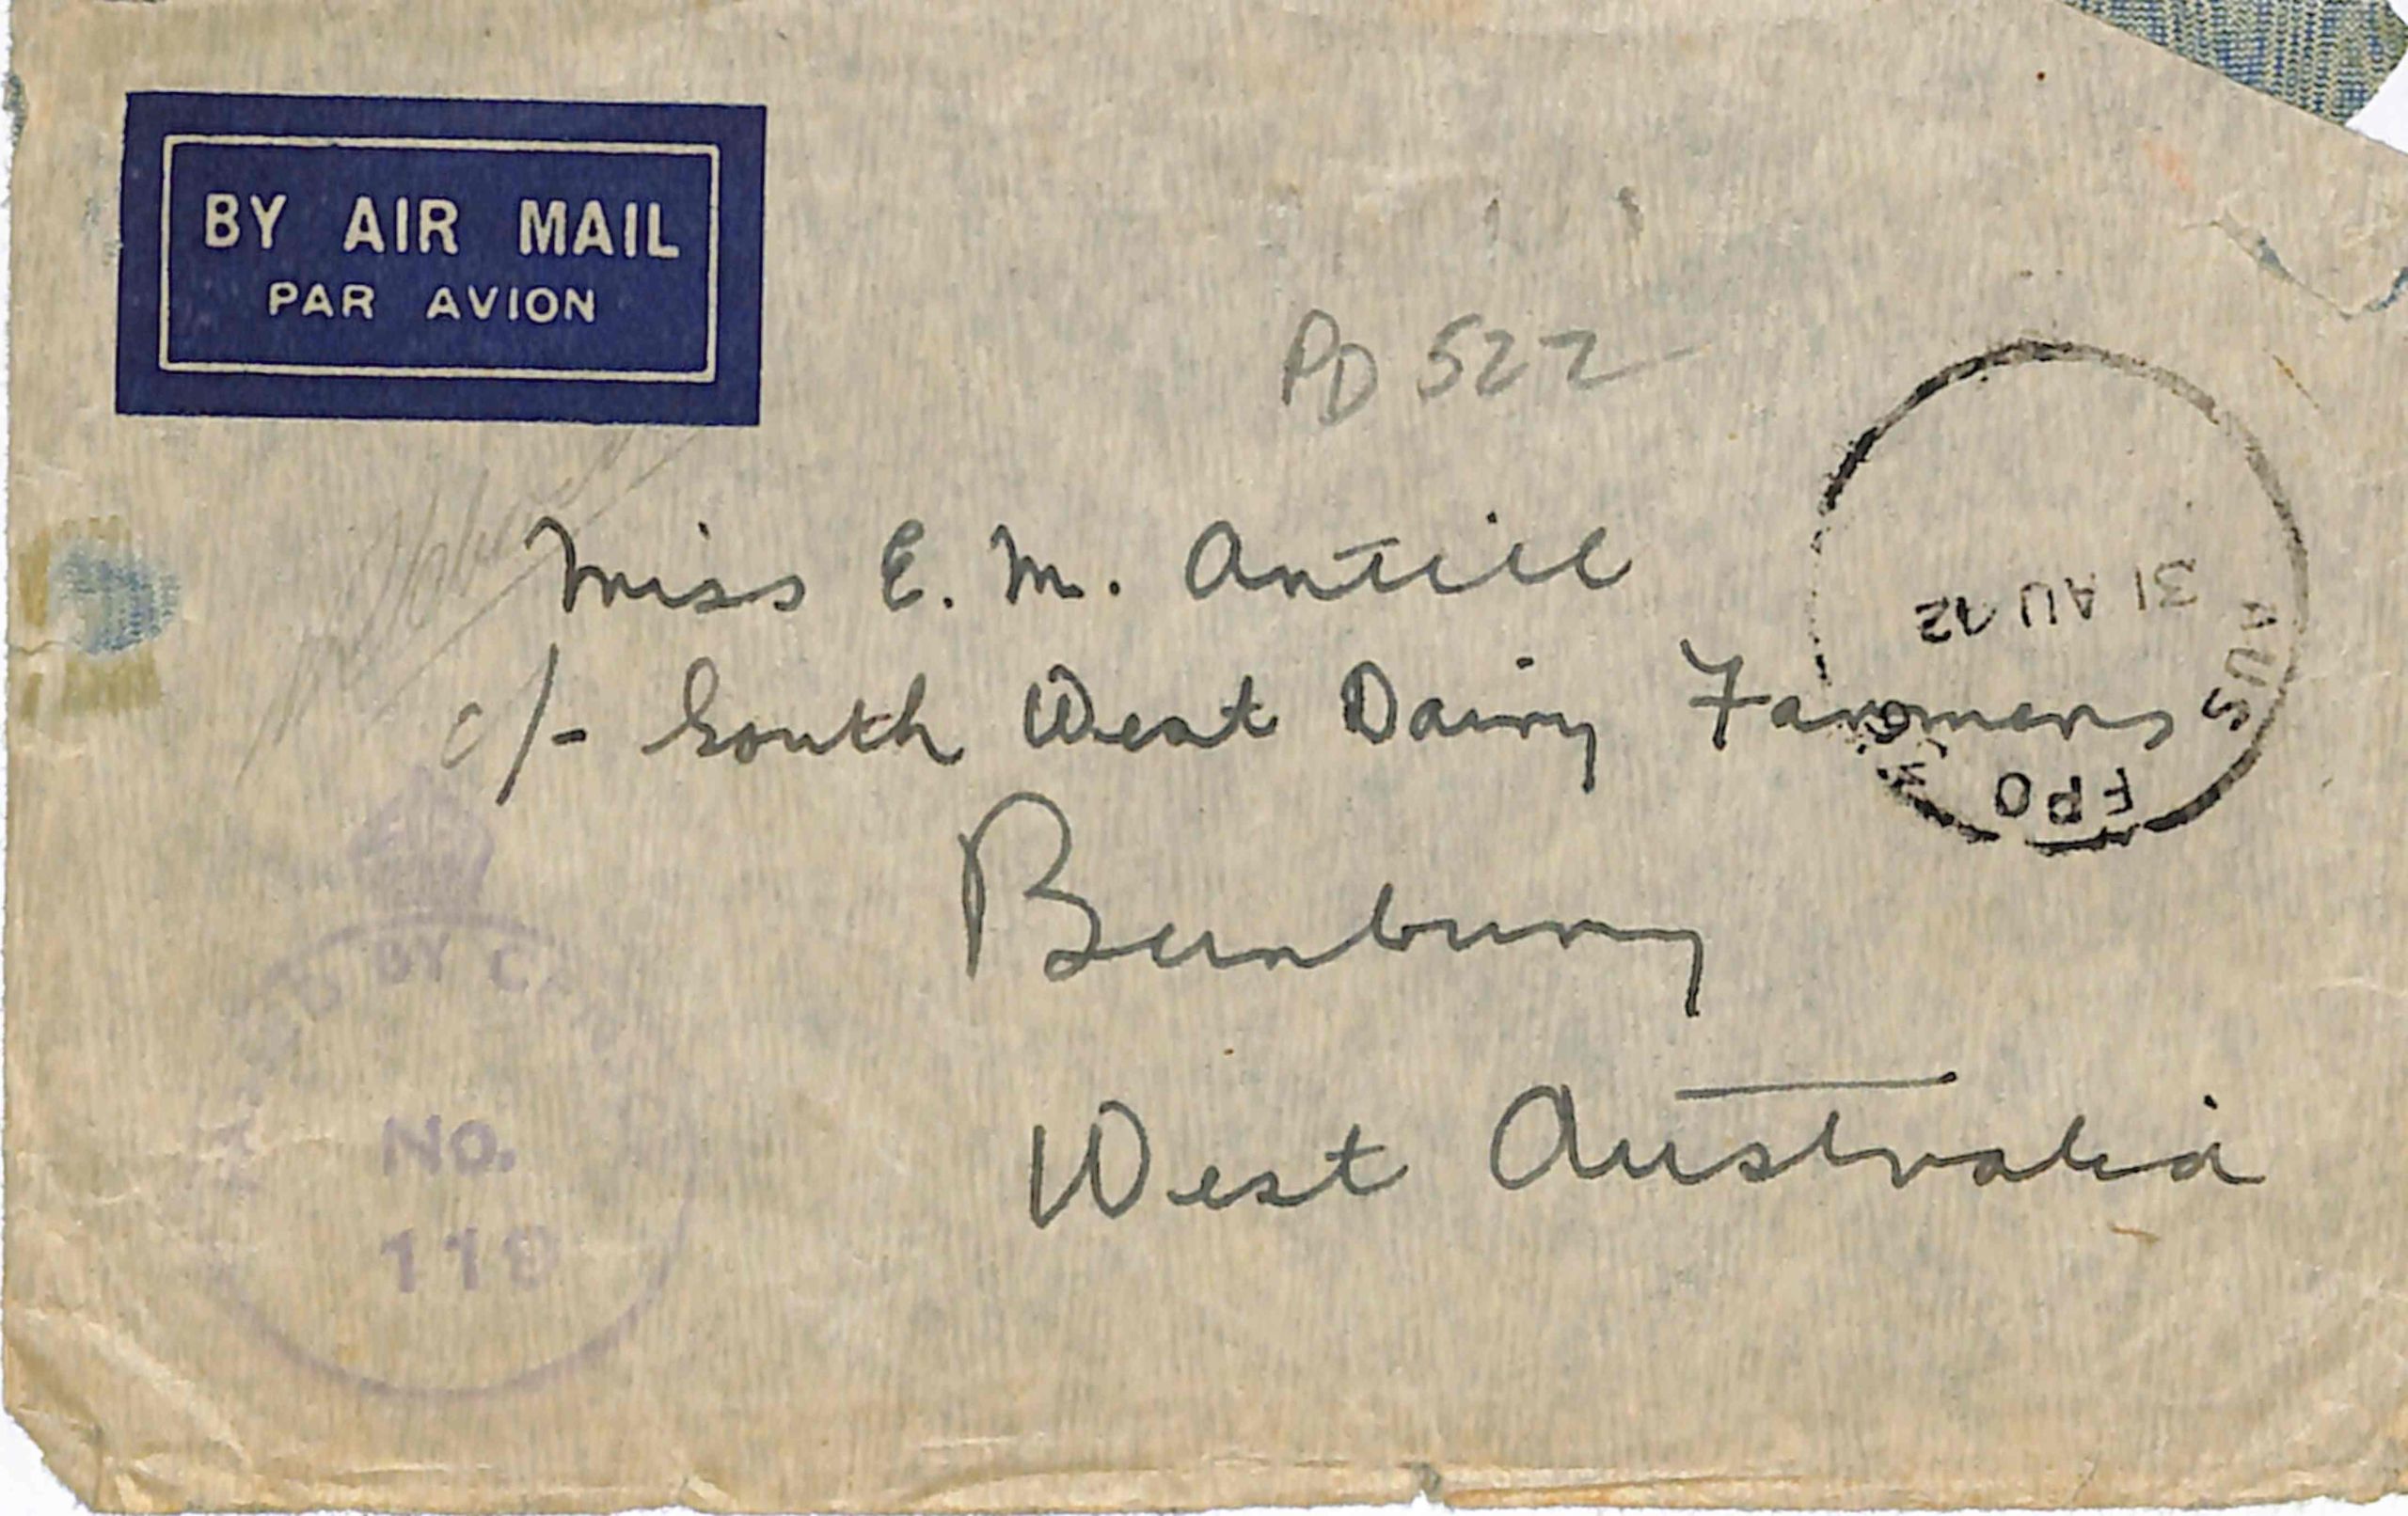 BY AIR MAIL
PAR AVION
PD 522
Miss E. M. Antill
c/- South West Dairy Farmers
Bunbury
West Australia
AUST FPO
31 AU 42
BY CEN
No.
119